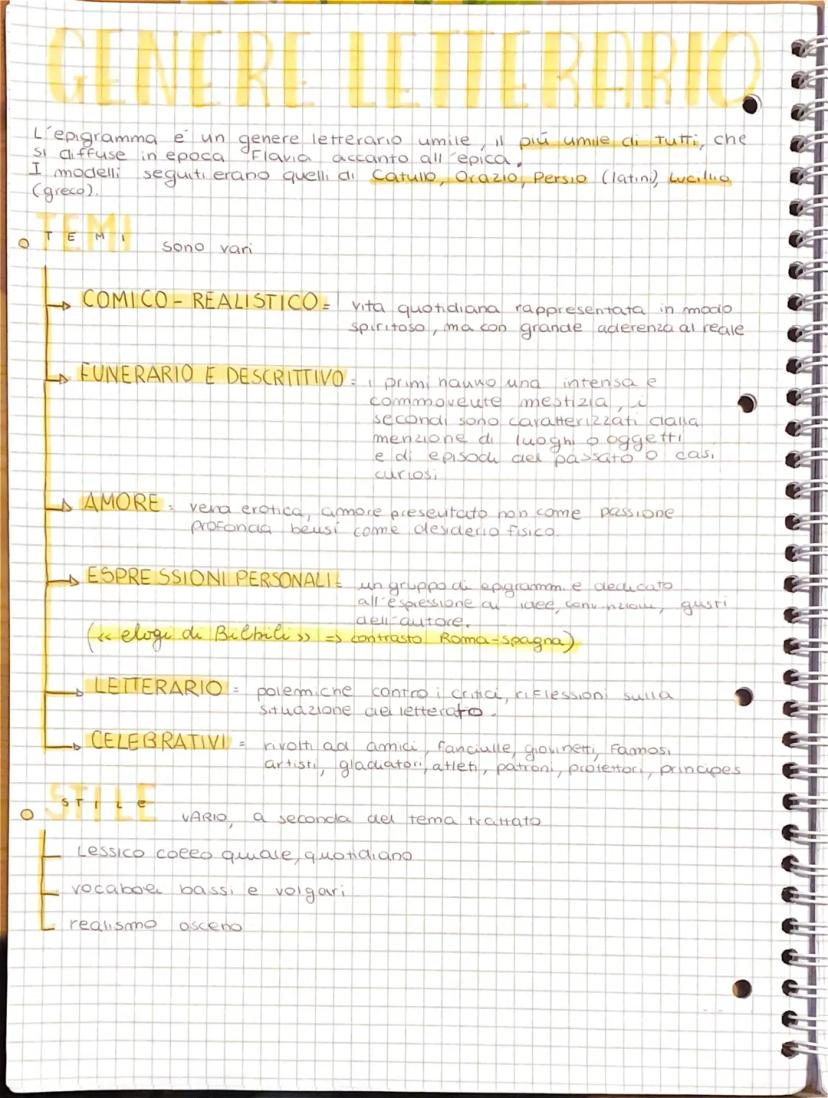 GENERE LETTERARIO
L'epigramma e' un genere letterario umile, il più umile di tutti, che
si diffuse in epoca Flavia accanto all'epica.
I modelli seguiti erano quelli di Catullo, Orazio, Persio (latini), Lucillio
(greco).
TEMI sono vari
COMICO - REALISTICO = vita quotidiana rappresentata in modo
spiritoso, ma con grande aderenza al reale
FUNERARIO E DESCRITTIVO = i primi hanno una intensa e
commovente mestizia, i
secondi sono caratterizzati dalla
menzione di luoghi o oggetti
e di episodi del passato o casi
curiosi
AMORE = vena erotica, amore presentato non come passione
profonda bensì come desiderio fisico.
ESPRESSIONI PERSONALI = un gruppo di epigrammi e dedicato
all'espressione di idee, convinzioni, gusti
dell'autore.
(« elogi di Bilbili » => contrasto Roma-Spagna)
LETTERARIO = polemiche contro i critici, riflessioni sulla
situazione dei letterato.
CELEBRATIVI = rivolti ad amici, fanciulle, giovinetti, famosi
artisti, gladiatori, atleti, patroni, protettori, principes
STILE VARIO, a seconda del tema trattato
Lessico colloquiale, quotidiano
vocaboli bassi e volgari
realismo osceno